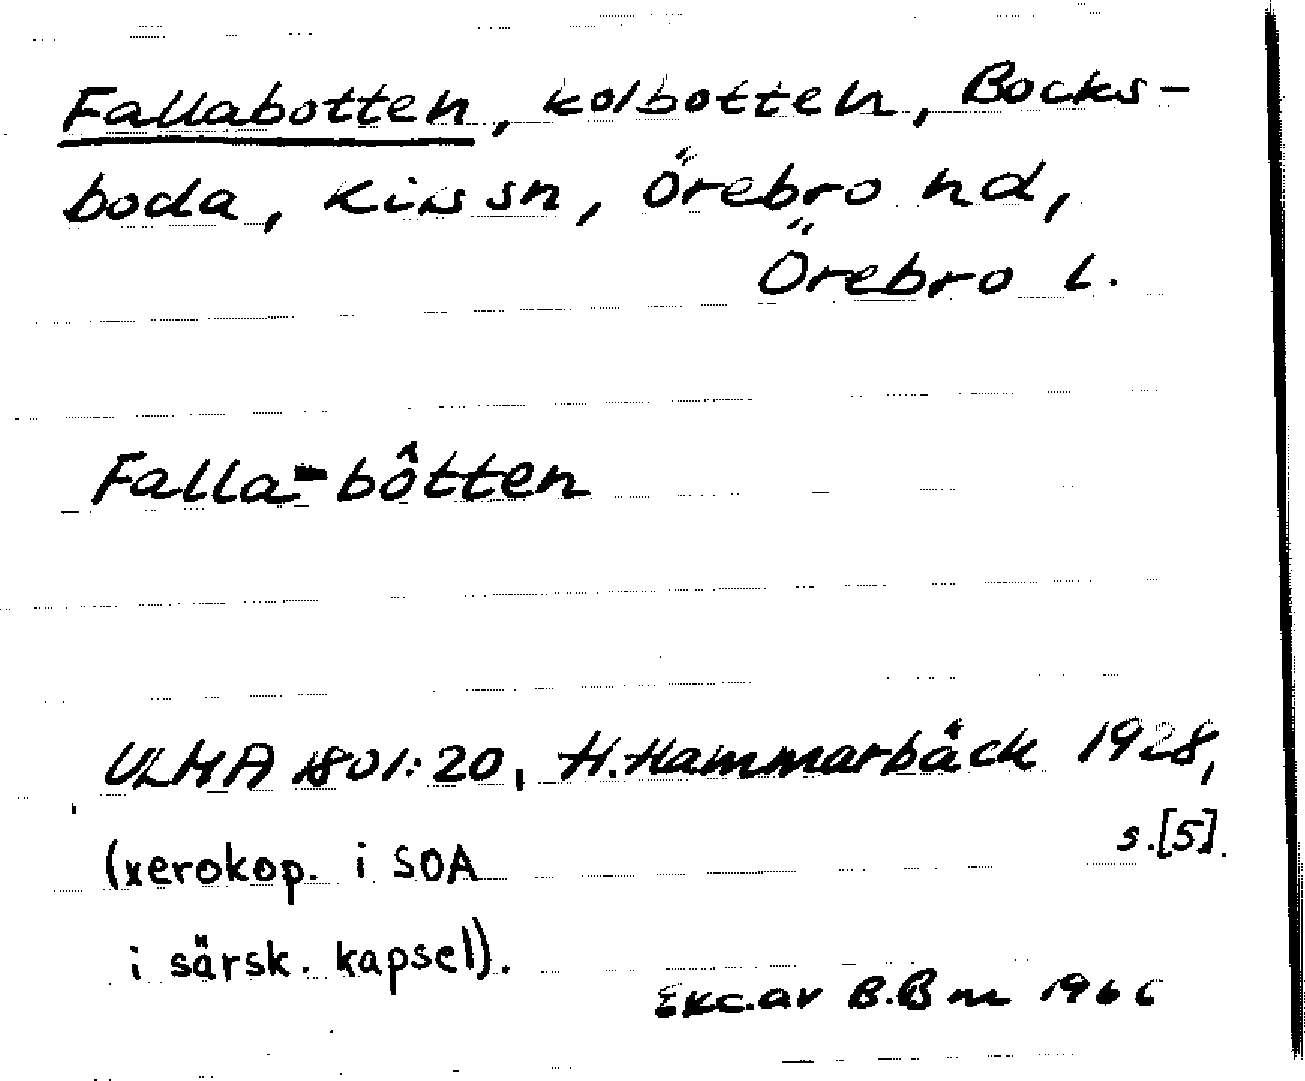 Fallabotten, kolbotten, Bocks-
boda, Kils sn, Örebro hd,
Örebro l.
Falla-bôtten
ULMA 1801:20, H. Hammarbäck 1928,
s. [5].
(xerokop. i SOA
i särsk. kapsel).
Exc. av B.Bm 1966